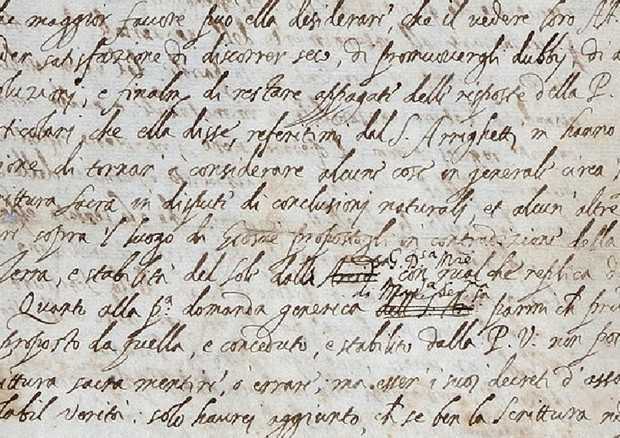 he maggior favore può ella desiderare, che il vedere loro Al
der satisfazione di discorrer seco, di promuovergli dubbij, di a
oluzioni, e finalm.te di restare appagati delle risposte della P.
rticolari che ella disse, referitimi dal S. Arrighetti m hanno
ione di tornare à considerare alcune cose in generale circa i
rittura sacra in dispute di conclusioni naturali, et alcun' altre
re sopra il luogo di Giosuè propostogli in contradizione della
G. D.sa M.re
Terra, e stabilità del Sole dalla con qualche replica d
di Mad.a Ser.ma
Quanto alla p.a domanda generica parmi ch pru
proposto da quella, e conceduto, e stabilito dalla P. V. non pote
ittura sacra mentire, o errare, ma esser i suoi decreti d' asso
labil verità: solo haurei aggiunto, ch se ben la Scrittura no